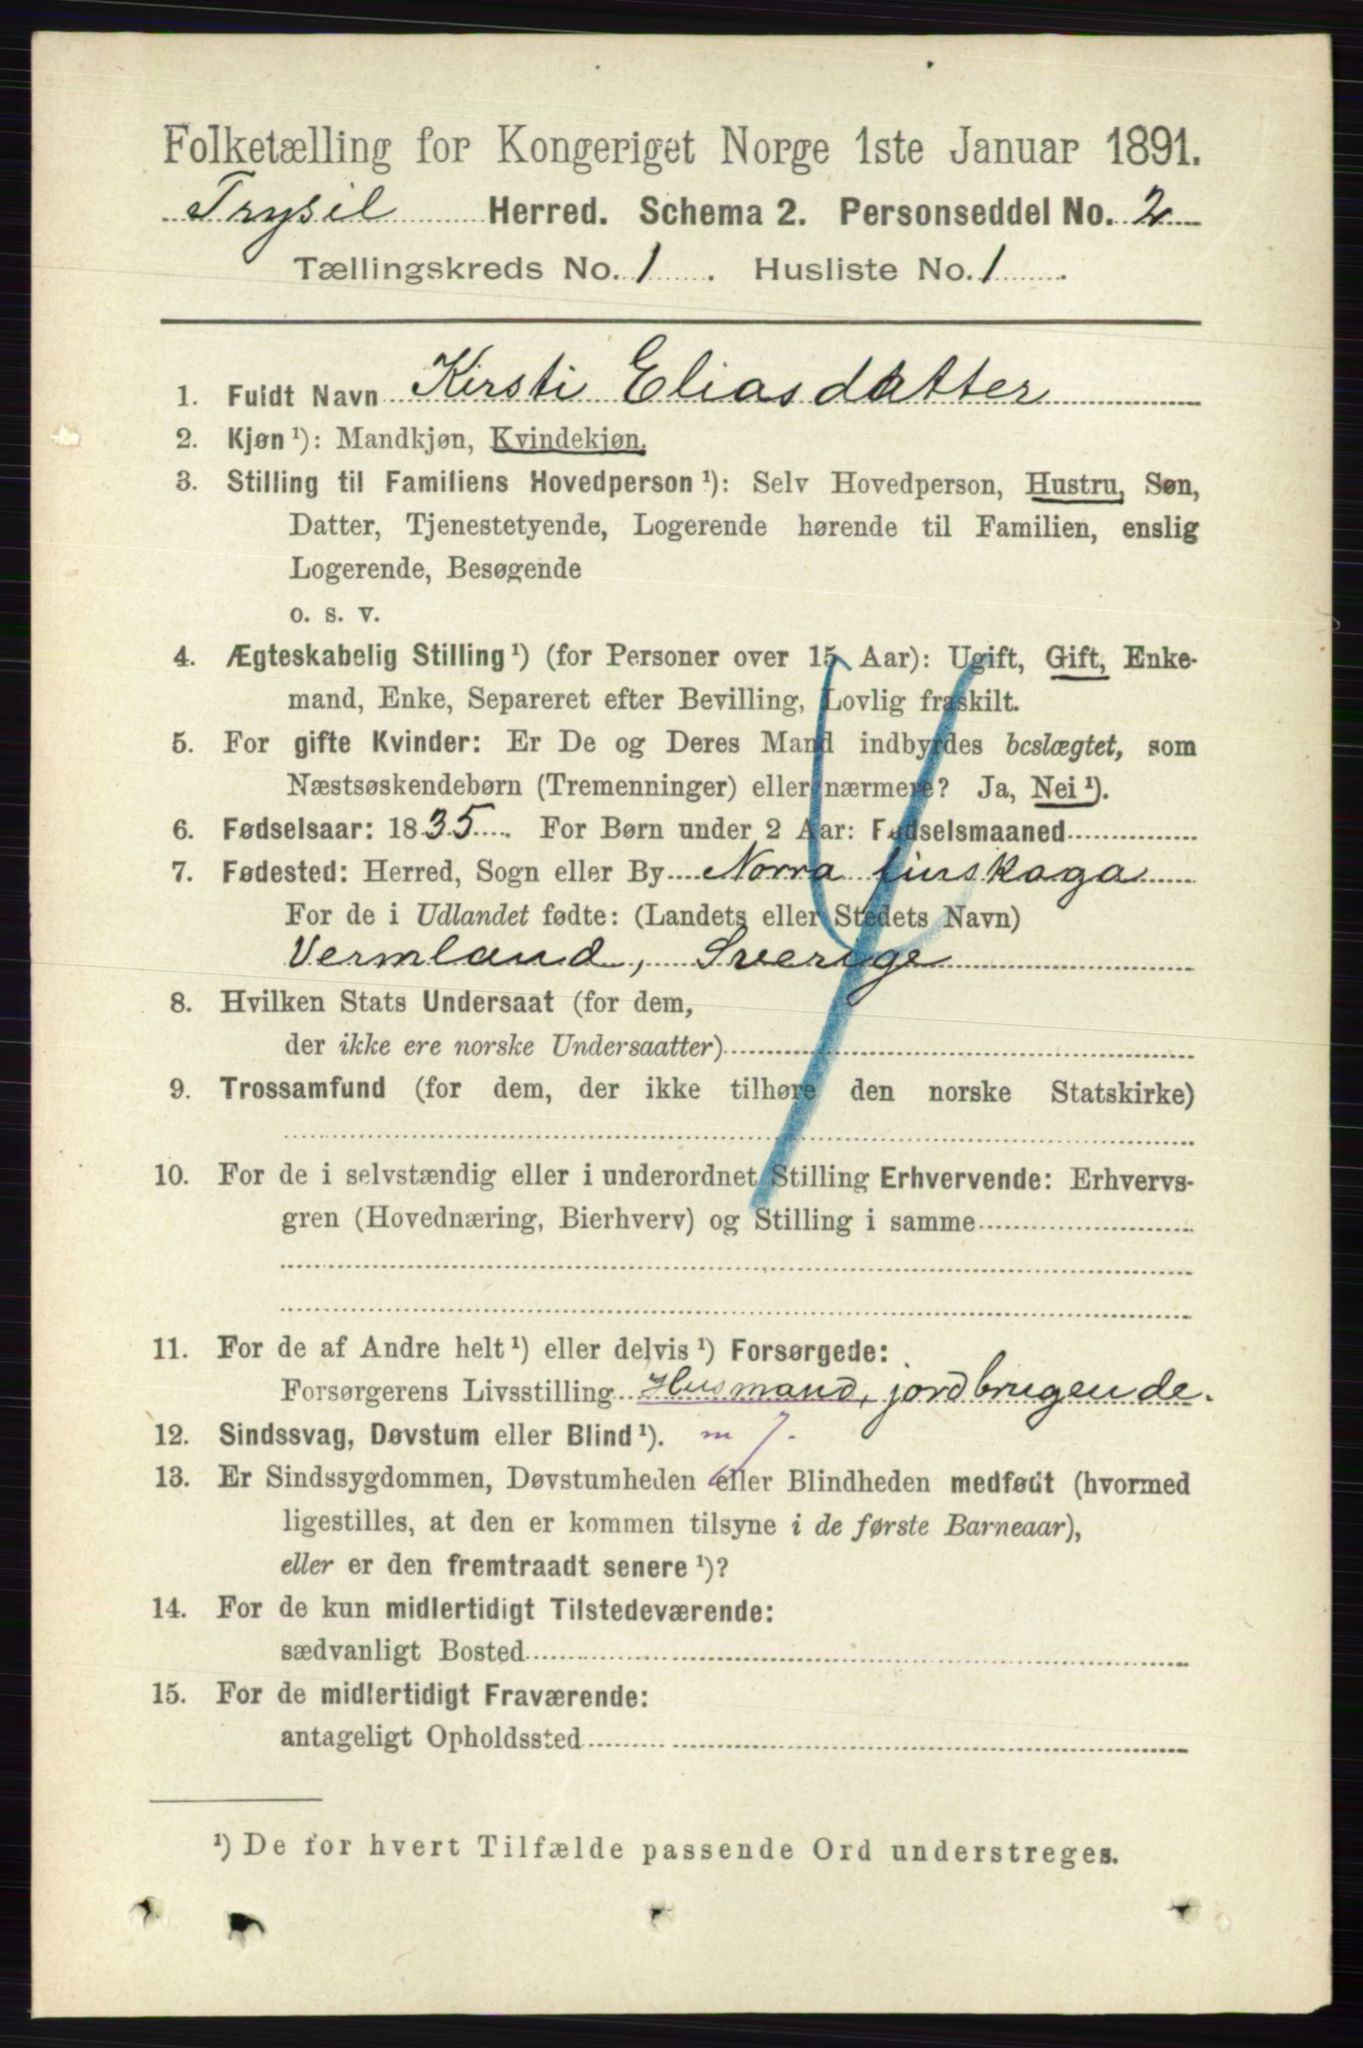 Folketælling for Kongeriget Norge 1ste Januar 1891.
Trysil Herred. Schema 2. Personseddel No. 2
Tællingskreds No. 1. Husliste No. 1.
1. Fuldt Navn Kirsti Eliasdatter
2. Kjøn ¹): Mandkjøn, Kvindekjøn.
3. Stilling til Familiens Hovedperson ¹): Selv Hovedperson, Hustru, Søn,
Datter, Tjenestetyende, Logerende hørende til Familien, enslig
Logerende, Besøgende
o. s. v.
4. Ægteskabelig Stilling ¹) (for Personer over 15 Aar): Ugift, Gift, Enke-
mand, Enke, Separeret efter Bevilling, Lovlig fraskilt.
5. For gifte Kvinder: Er De og Deres Mand indbyrdes beslægtet, som
Næstsøskendebørn (Tremenninger) eller nærmere? Ja, Nei ¹).
6. Fødselsaar: 1835. For Børn under 2 Aar: Fødselsmaaned
7. Fødested: Herred, Sogn eller By Norra finskoga
For de i Udlandet fødte: (Landets eller Stedets Navn)
Vermland, Sverige
8. Hvilken Stats Undersaat (for dem,
der ikke ere norske Undersaatter)
9. Trossamfund (for dem, der ikke tilhøre den norske Statskirke)
10. For de i selvstændig eller i underordnet Stilling Erhvervende: Erhvervs-
gren (Hovednæring, Bierhverv) og Stilling i samme
11. For de af Andre helt ¹) eller delvis ¹) Forsørgede:
Forsørgerens Livsstilling Husmand, jordbrugende.
12. Sindssvag, Døvstum eller Blind ¹). m 7.
13. Er Sindssygdommen, Døvstumheden eller Blindheden medfødt (hvormed
ligestilles, at den er kommen tilsyne i de første Barneaar),
eller er den fremtraadt senere ¹)?
14. For de kun midlertidigt Tilstedeværende:
sædvanligt Bosted
15. For de midlertidigt Fraværende:
antageligt Opholdssted
¹) De for hvert Tilfælde passende Ord understreges.